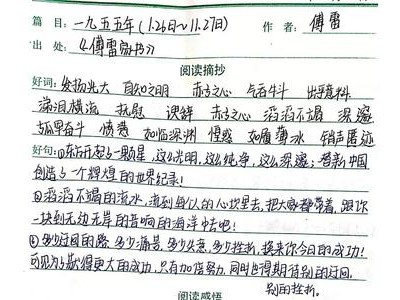 篇目：一九五五年(1.26日~11.27日) 作者：傅雷
出处：《傅雷家书》
阅读摘抄
好词：发扬光大 自知之明 赤子之心 气吞斗牛 出乎意料
涕泪横流 抚慰 谬解 赤子之心 滔滔不竭 深邃
孤军奋斗 愤懑 如临深渊 惶惑 如履薄冰 销声匿迹
好句：①东方升起了一颗星，这么光明，这么纯净，这么深邃；替新中国
创造了一个辉煌的世界纪录！
②滔滔不竭的流水，流到每个人的心坎里去，把大家都带着，跟你
一块到无边无岸的音响的海洋中去吧！
③多少迂回的路，多少痛苦，多少失意，多少挫折，换来你今日的成功！
可见为了获得更大的成功，只有加倍努力，同时也得期待别的迂回，
别的挫折。
阅读感悟